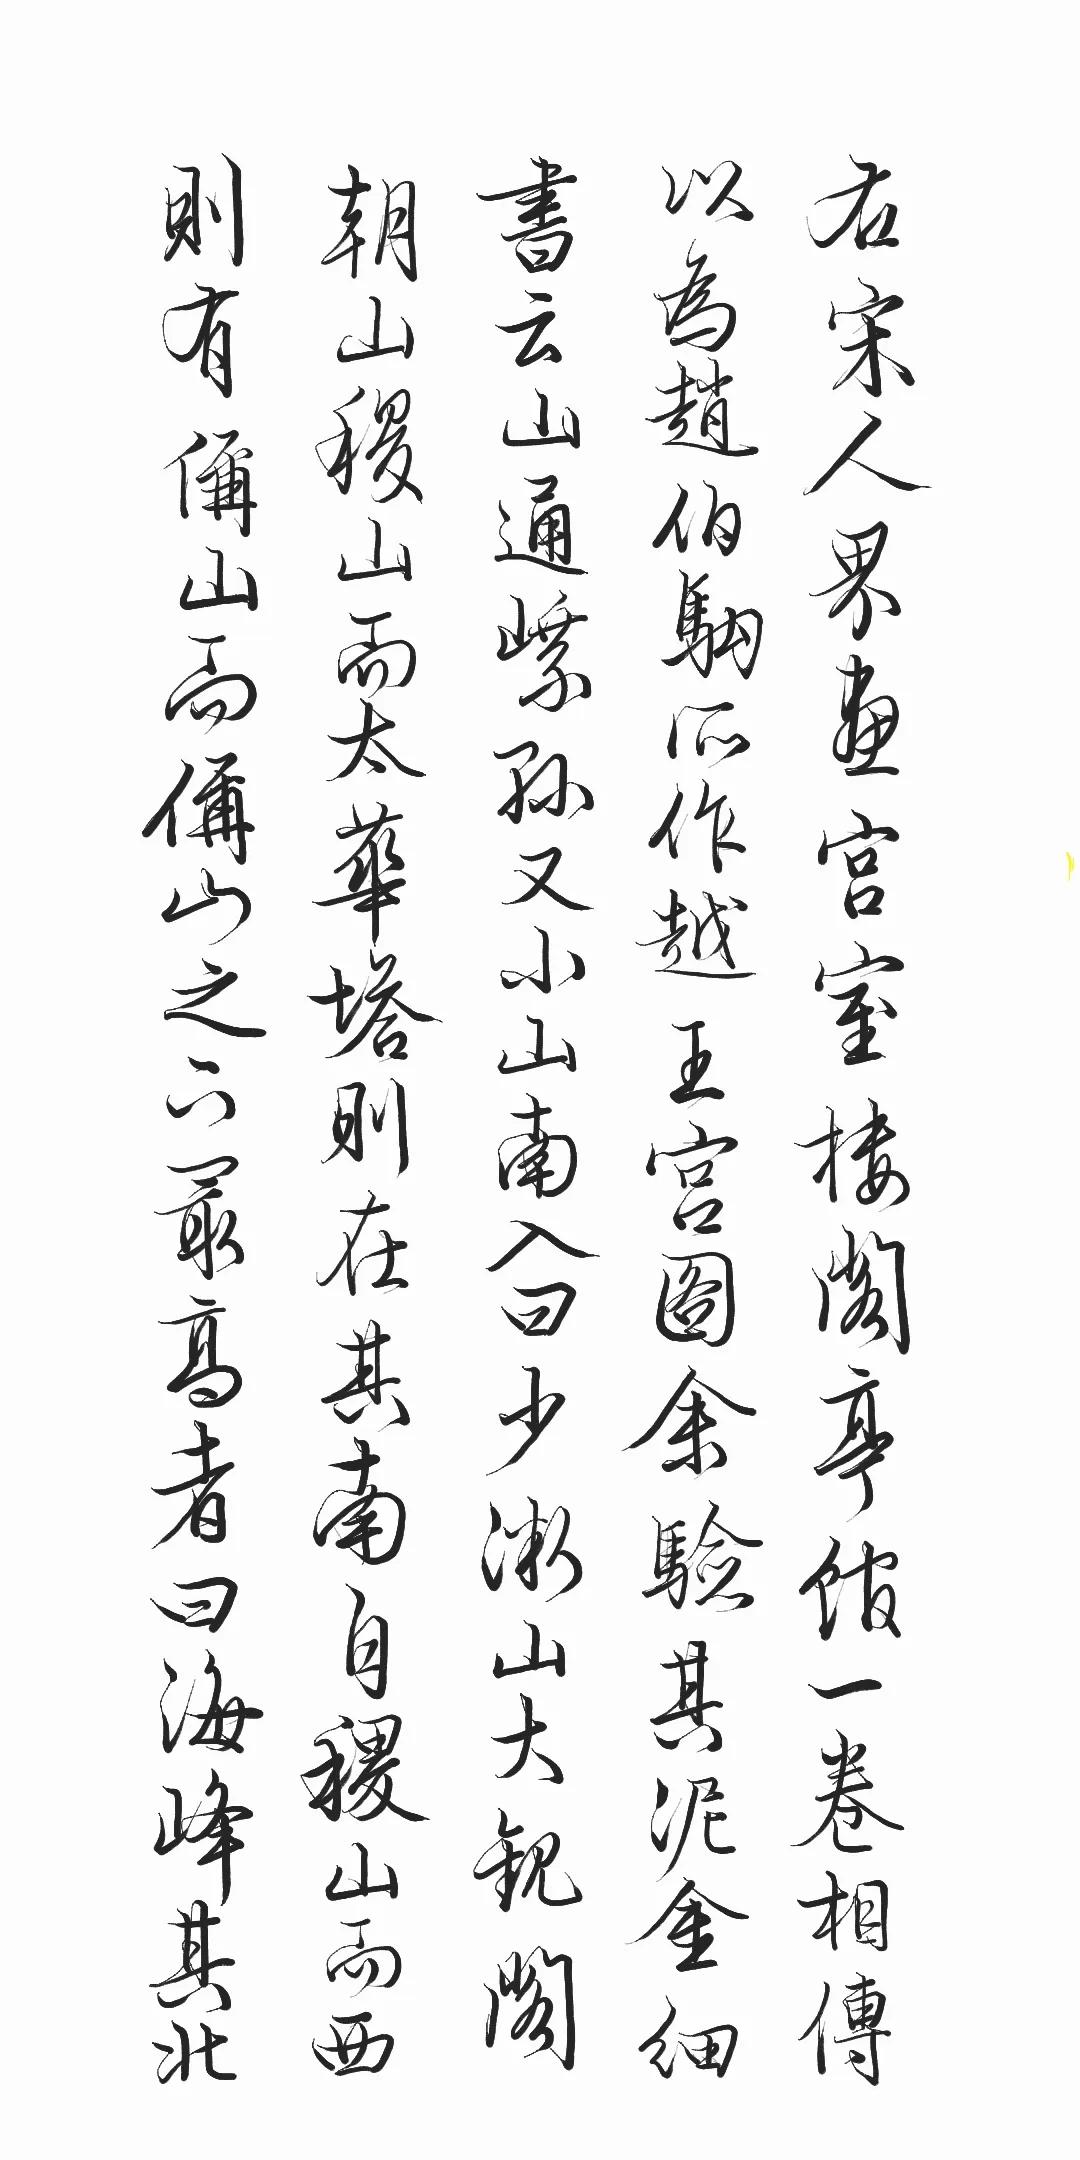 右宋人界畫宮室樓閣亭館一卷相傳
以為趙伯駒所作越王宮圖余驗其泥金細
書云山通嵊孫又小山南入曰少漸山大觀閣
朝山稷山而太華塔則在其南自稷山而西
則有偁山而偁山之下最高者曰海峰其北